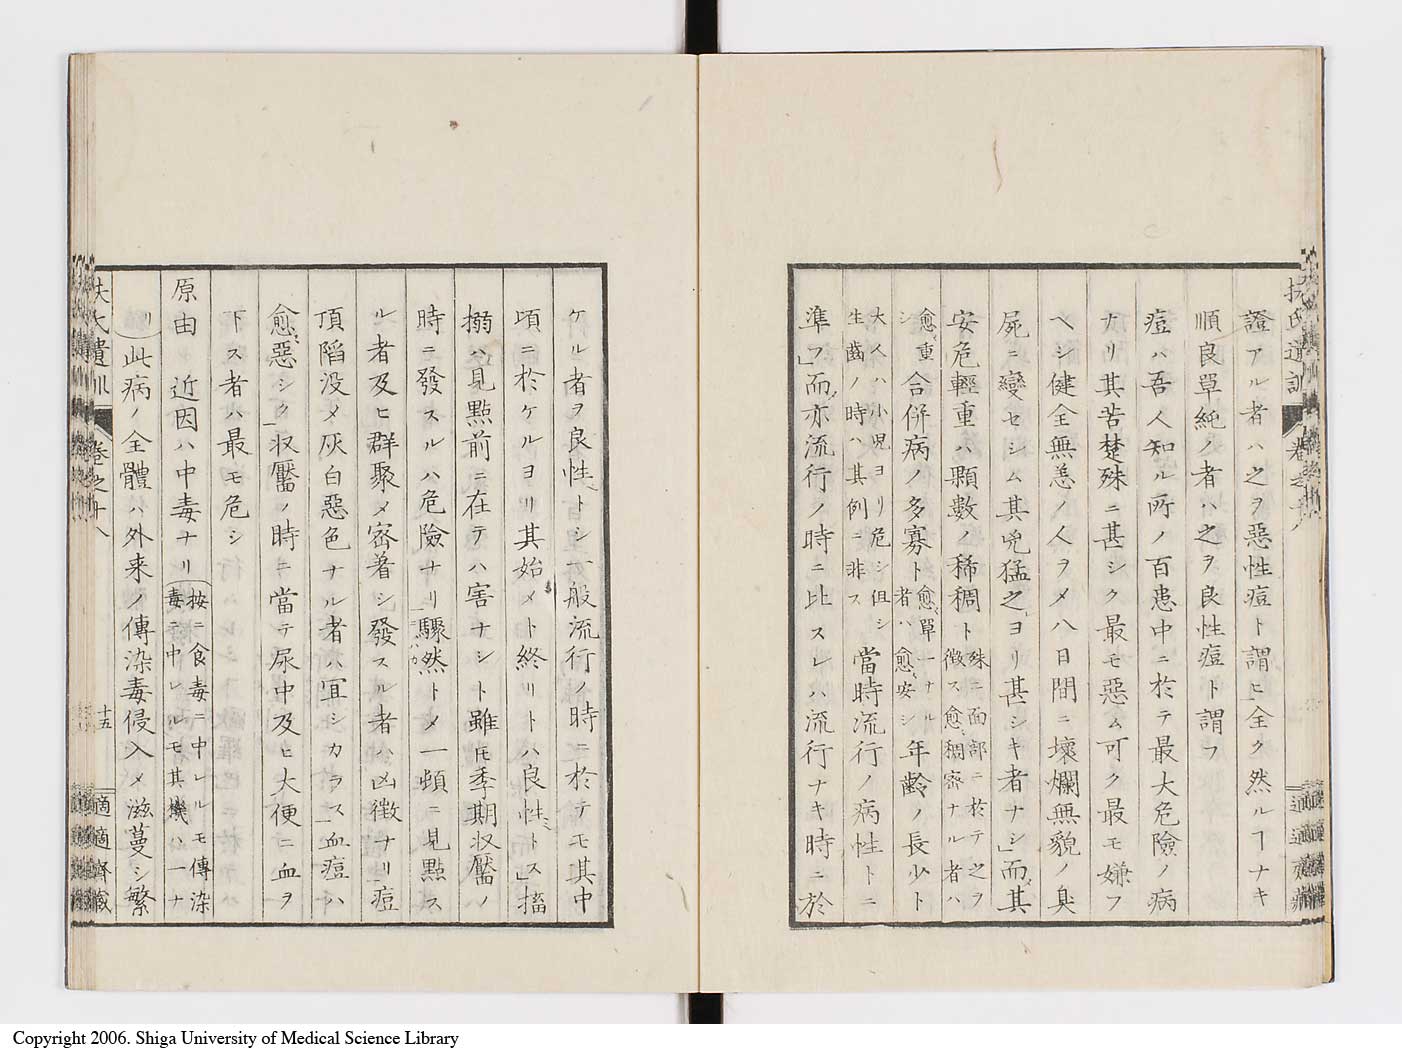 證アル者ハ之ヲ惡性痘ト謂ヒ全ク然ルヿナキ
順良單純ノ者ハ之ヲ良性痘ト謂フ
痘ハ吾人知ル所ノ百患中ニ於テ最大危險ノ病
ナリ其苦楚殊ニ甚シク最モ惡ム可ク最モ嫌フ
ヘシ健全無恙ノ人ヲメ八日間ニ壞爛無貌ノ臭
屍ニ變セシム其兇猛之ヨリ甚シキ者ナシ」而其
安危輕重ハ顆數ノ稀稠ト
殊ニ面部ニ於テ之ヲ
徴ス愈稠密ナル者ハ
愈重
シ
合併病ノ多寡ト
愈單一ナル
者ハ愈安シ
年齡ノ長少ト
大人ハ小児ヨリ危シ但シ
生齒ノ時ハ其例ニ非ス
當時流行ノ病性トニ
準フ」而亦流行ノ時ニ比スレハ流行ナキ時ニ於
ケル者ヲ良性トシ一般流行ノ時ニ於テモ其中
頃ニ於ケルヨリ其始メト終リトハ良性トス」搐
搦ハ見點前ニ在テハ害ナシト雖𪜈季期収靨ノ
時ニ發スルハ危險ナリ驟然トメ一頓ニ見點ス
ル者及ヒ群聚メ密着シ發スル者ハ凶徴ナリ」痘
頂陷没メ灰白惡色ナル者ハ冝シカラス」血痘ハ
愈惡シク収靨ノ時ニ當テ尿中及ヒ大便ニ血ヲ
下ス者ハ最モ危シ
原由 近因ハ中毒ナリ
按ニ食毒ニ中レルモ傳染
毒ニ中レルモ其機ハ一ナ
リ
此病ノ全體ハ外来ノ傳染毒侵入メ滋蔓シ繁
扶氏遺訓 卷之十八
十五
適適齋藏